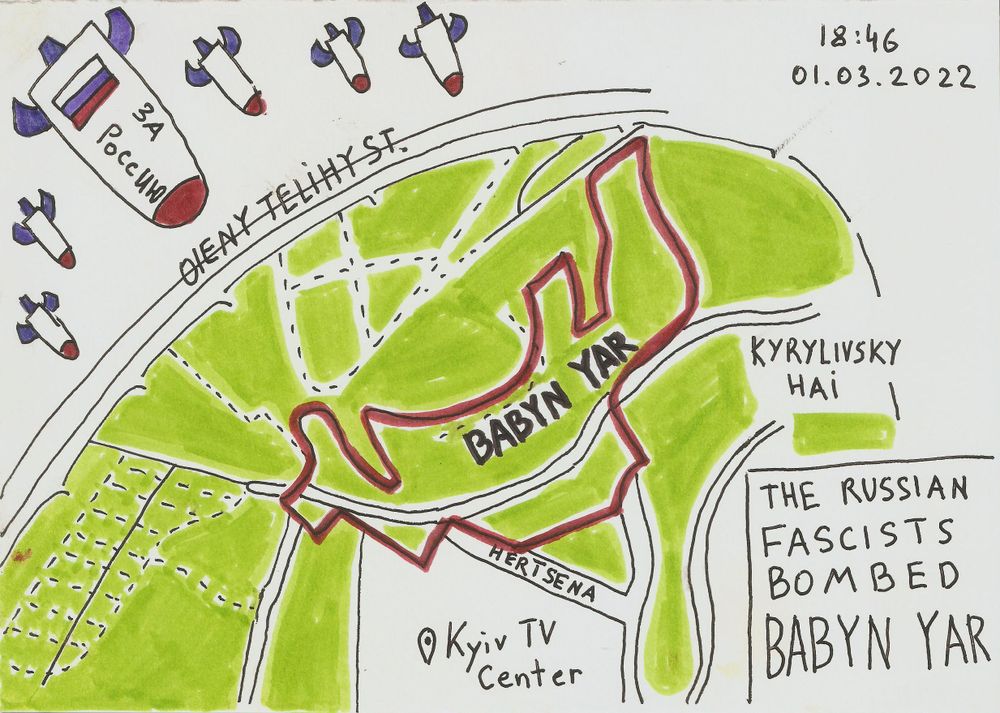 18:46
01.03.2022
ЗА
РоссиЮ
OlENY TELIHY ST.
BABYN YAR
KYRYLIVSKY
HAI
HERTSENA
Kyiv TV
Center
THE RUSSIAN
FASCISTS
BOMBED
BABYN YAR